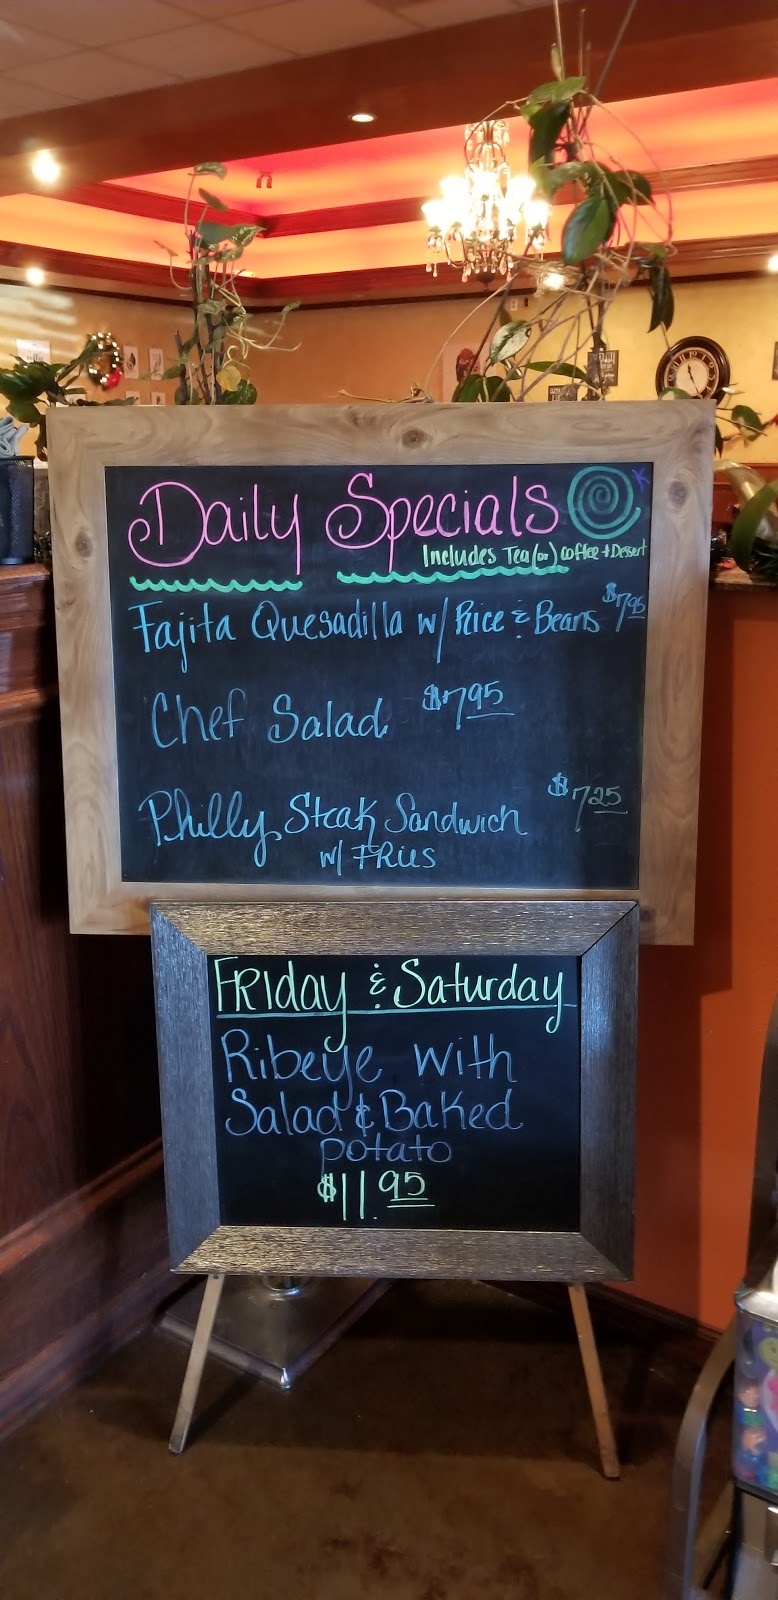 Daily Specials
K
Includes Tea (or) coffee + Dessert
Fajita Quesadilla w/ Rice & Beans $7.95
Chef Salad $7.95
Philly Steak Sandwich $7.25
w/ FRIES
FRIday & Saturday
Ribeye with
Salad & Baked
potato
$11.95